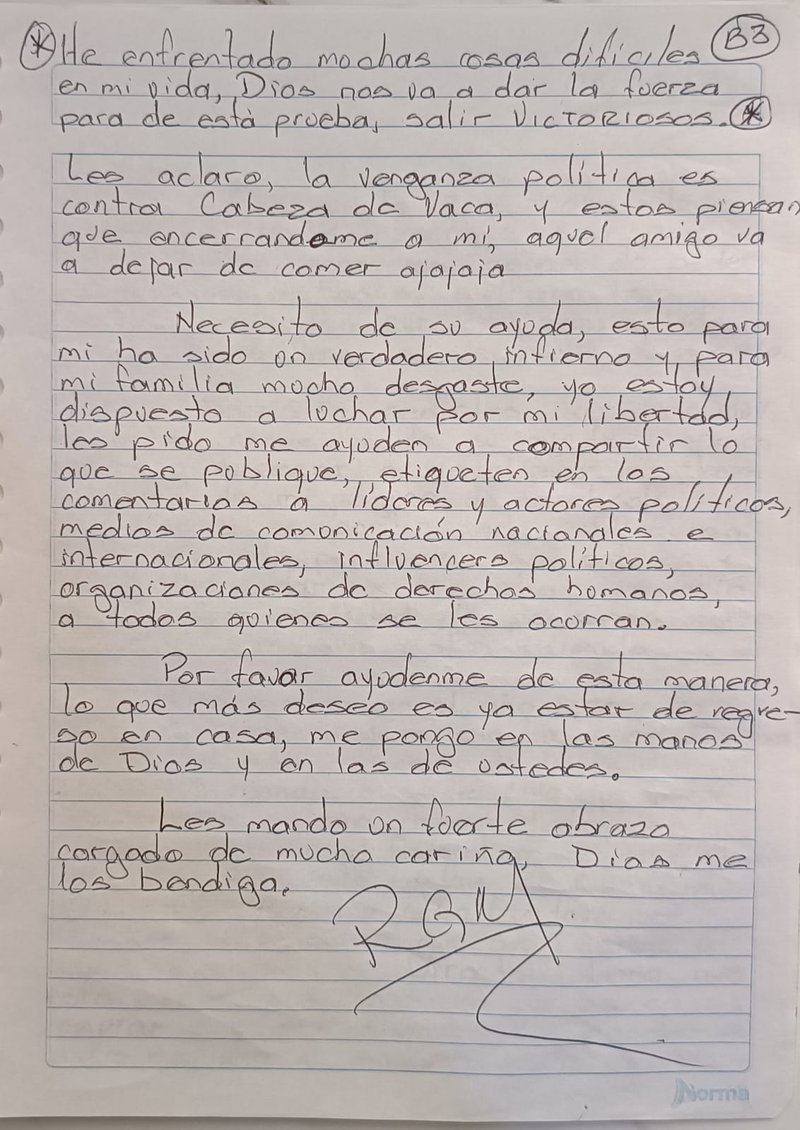 * He enfrentado muchas cosas dificiles B3
en mi vida, Dios nos va a dar la fuerza
para de está prueba, salir VICTORIOSOS. *
Les aclaro, la venganza política es
contra Cabeza de Vaca, y estos piensan
que encerrandome a mí, aquel amigo va
a dejar de comer ajajaja
Necesito de su ayuda, esto para
mi ha sido un verdadero infierno y para
mi familia mucho desgaste, yo estoy
dispuesto a luchar por mi libertad,
les pido me ayuden a compartir lo
que se publique, etiqueten en los
comentarios a líderes y actores políticos,
medios de comunicación nacionales e
internacionales, influencers políticos,
organizaciones de derechos humanos,
a todos quienes se les ocurran.
Por favor ayudenme de esta manera,
lo que más deseo es ya estar de regre-
so en casa, me pongo en las manos
de Dios y en las de ustedes.
Les mando un fuerte abrazo
cargado de mucha cariño, Dios me
los bendiga.
RGM
Norma